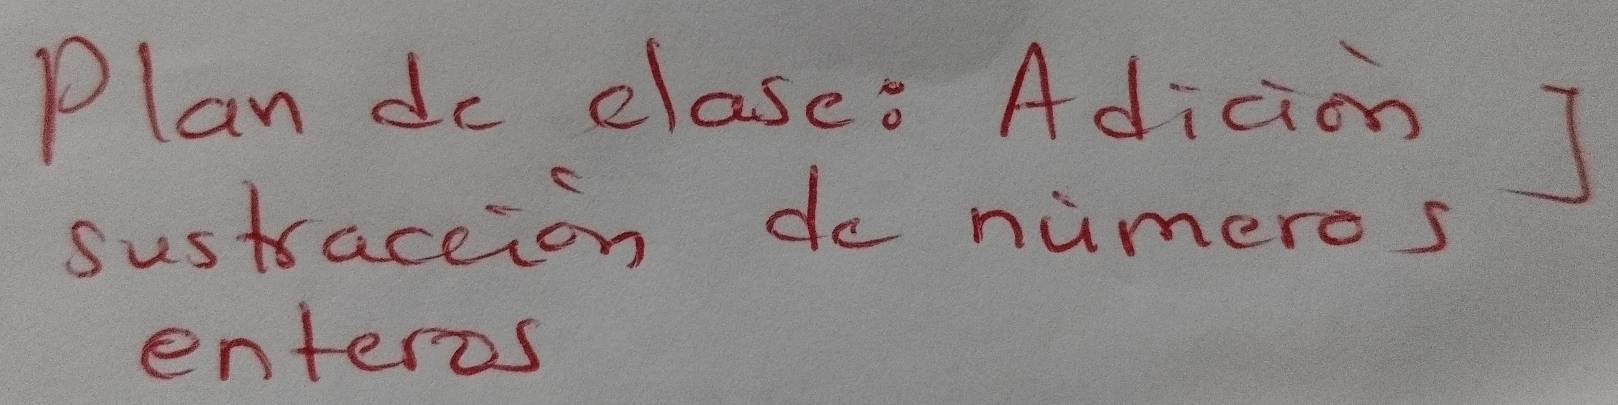 Plan de clase: Adición y
sustracción de números
enteros